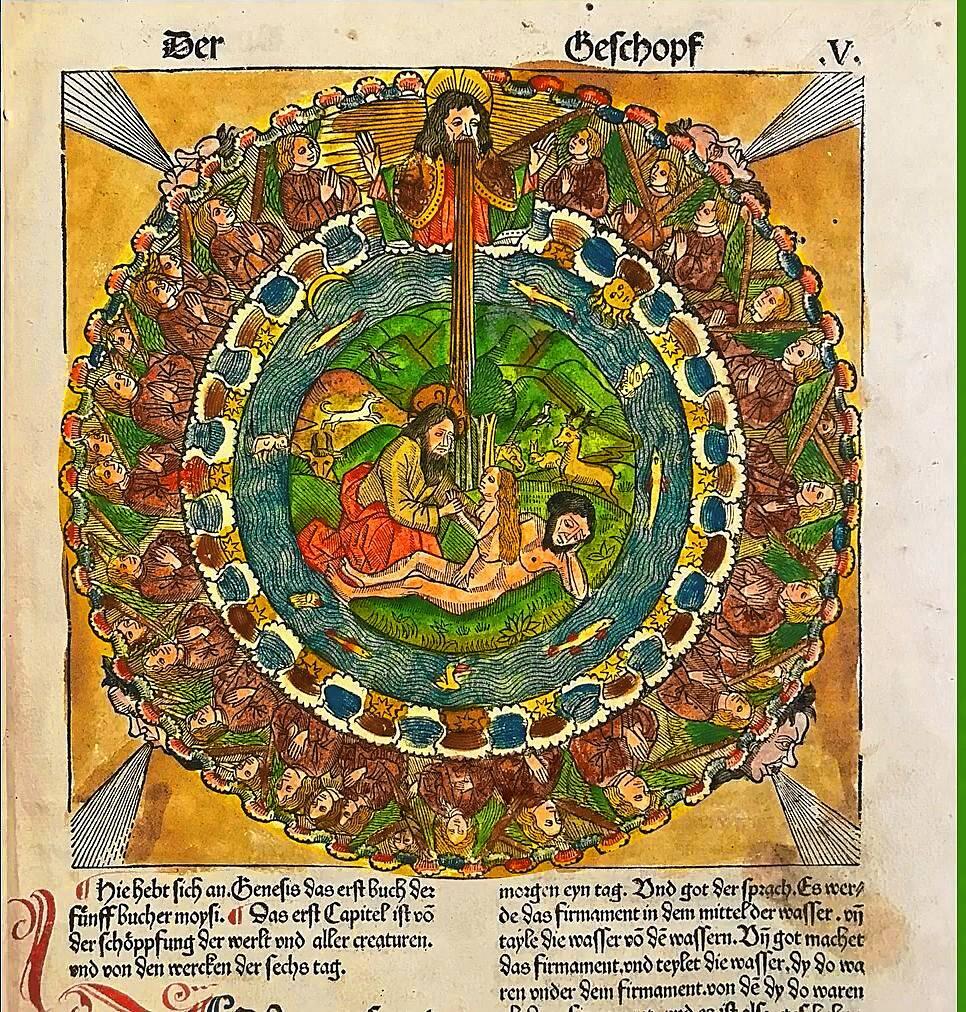 Der Geschopf .V.
¶ Hie hebt sich an. Genesis das erst buch der
fünff bucher moysi. ¶ Das erst Capitel ist vō
der schöppfung der werlt vnd aller creaturen.
vnd von den wercken der sechs tag.
morgen eyn tag. Vnd got der sprach. Es wer⸗
de das firmament in dem mittel der wasser. vn̄
tayle die wasser vō dē wassern. Vn̄ got machet
das firmament, vnd teylet die wasser, dy do wa
ren vnder dem firmament. von dē dy do waren